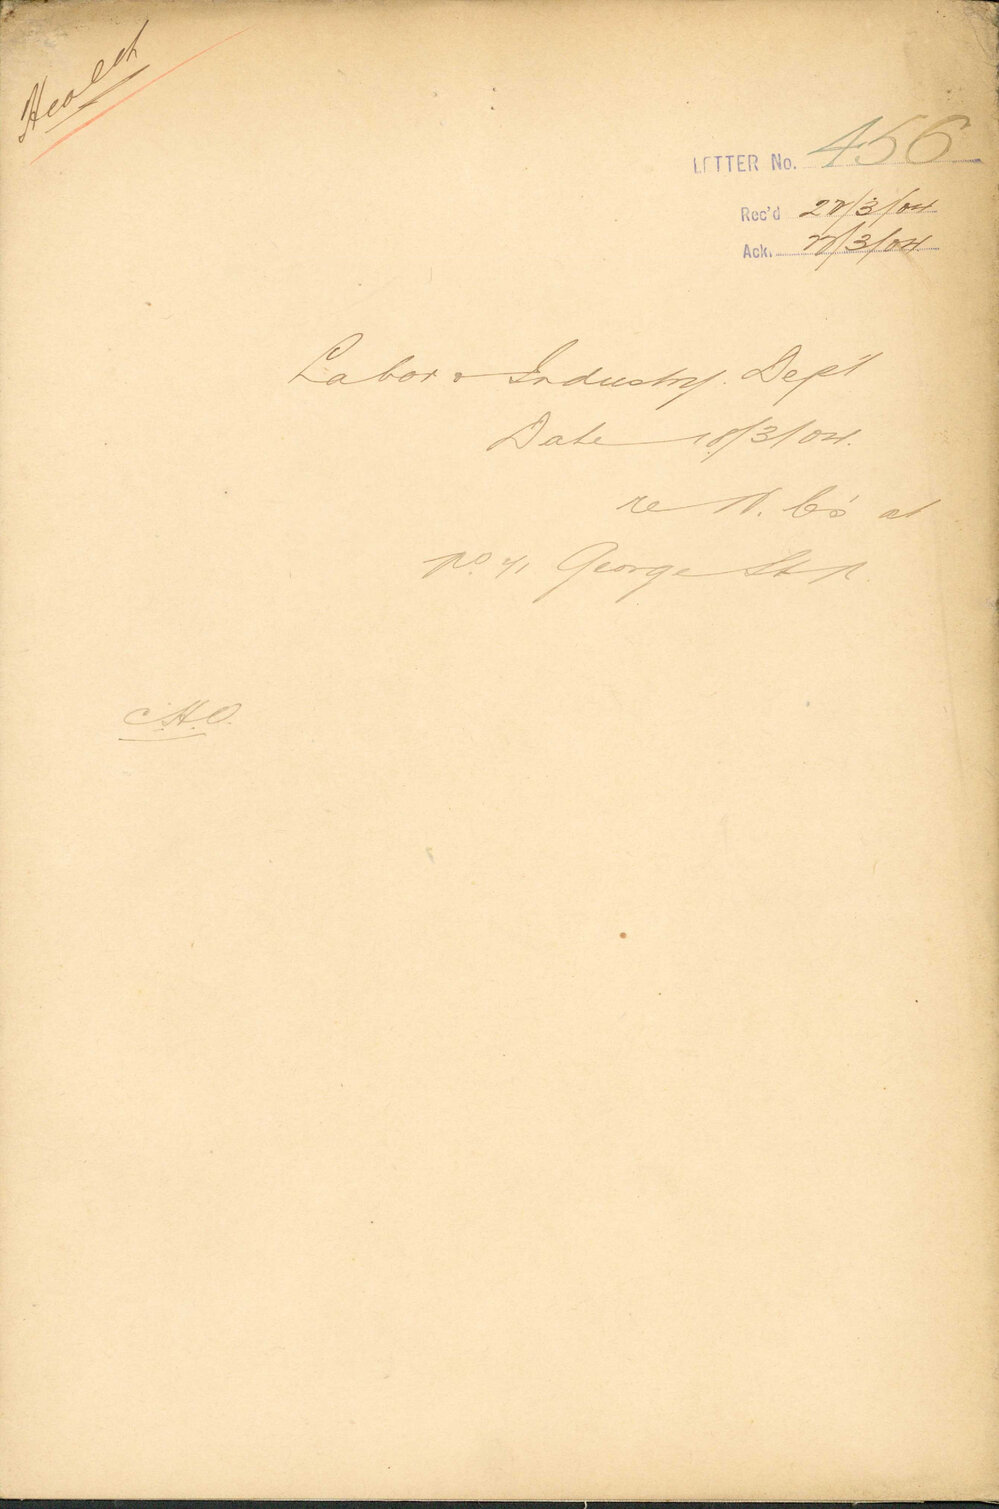 Health
LETTER No. 456
Rec'd 22/3/04
Ack. 22/3/04
Labor & Industry Dept
Date 18/3/04.
re W. C's at
No 41 George St
C.H.O.